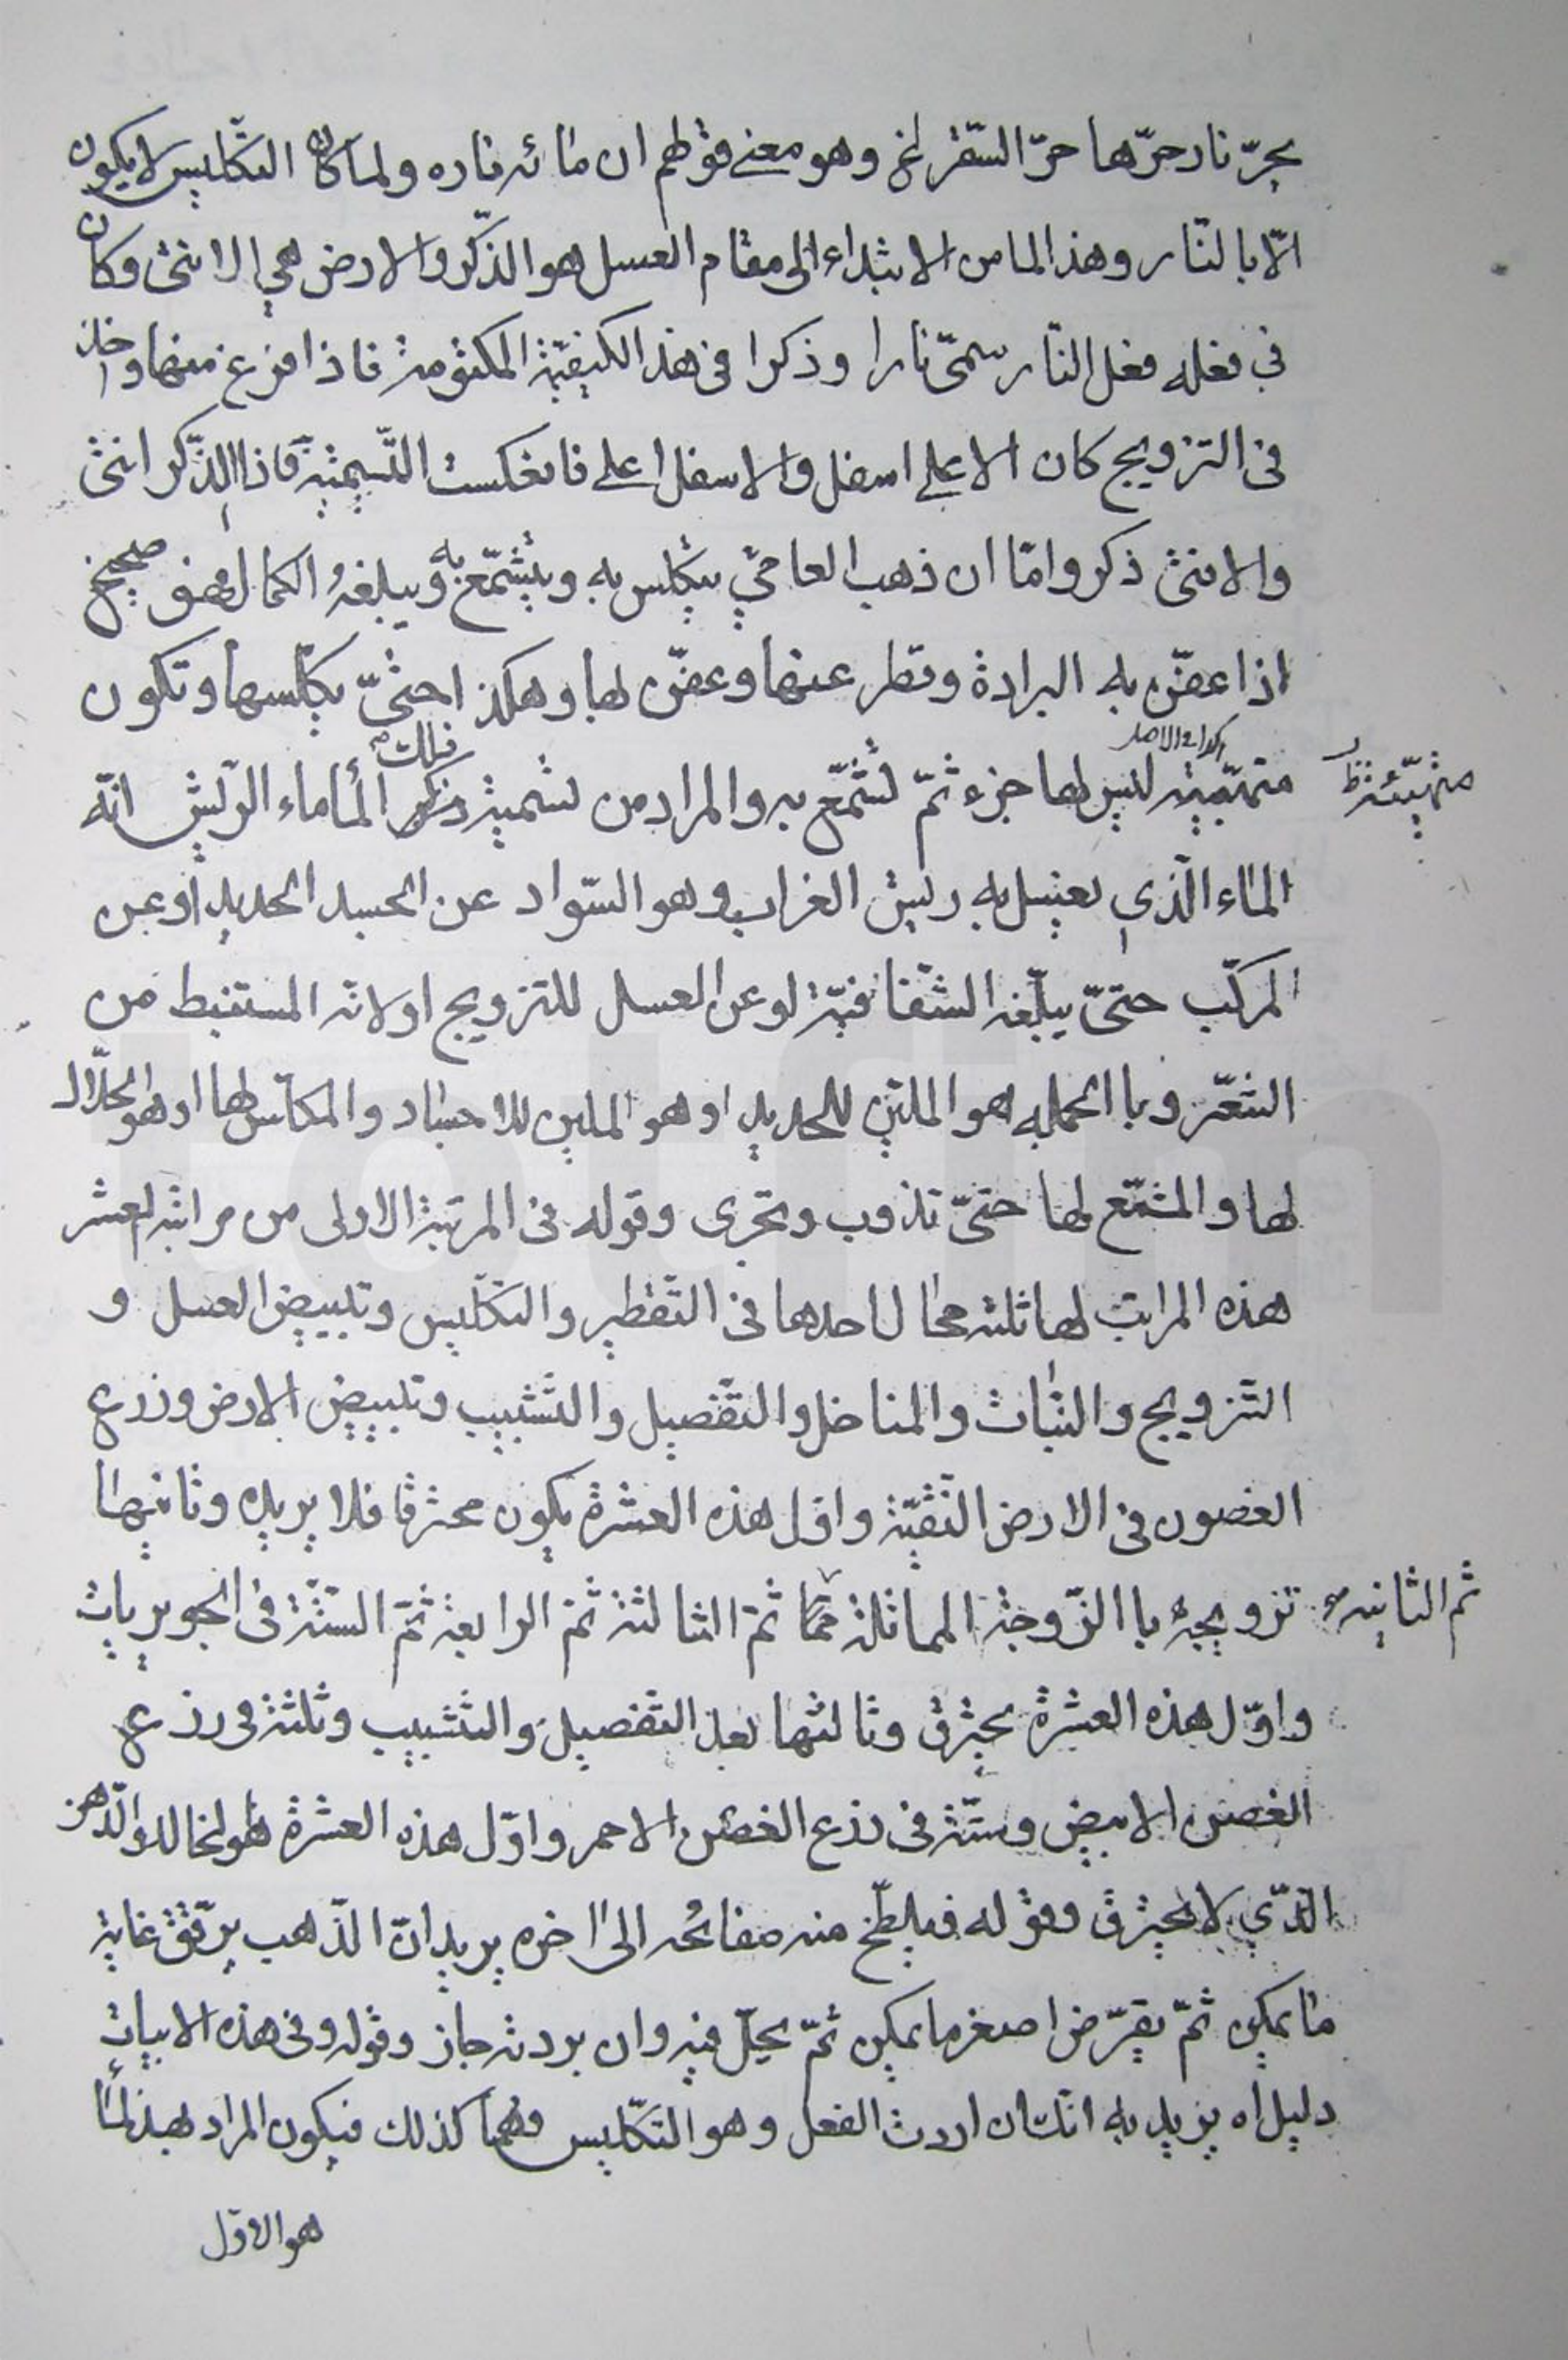 بحرّ نار حرّها حرّ السّقر لخ وهو معنى قولهم ان مائه ناره ولما كان التكليس لا يكون
الّا بالنّار وهذا الما من الابتداء الى مقام الغسل هو الذّكر والارض هي الانثى وكان
في فعله فعل النّار سمّى نارا وذكرا فى هذا الكيفيّة المكتومة فاذا فرغ منها واخذ
فى التزويج كان الاعلى اسفل والاسفل اعلى فانعكست التّسمية فاذا الذّكر انثى
والانثى ذكر وامّا ان ذهب العامّي يتكلس به ويتشمّع به ويبلغه الكمال فهو صحيح
اذا عفّن به البرادة وقطر عنها وعفّن لها وهكذا حتّى يكلّسها وتكون
متهبّية ليس لها جزء ثمّ تشمّع به والمراد من تسمية ذلك الماء ماء الرّيش انّه
متهيّئة ظ
الماء الّذي يغسل به ريش الغراب وهو السّواد عن الجسد الجديد او عن
المركّب حتىّ يبلّغه الشّفافيّة لو عن الغسل للتزويج او لانه المستنبط من
الشّعر وبا الجمله هو الملّين للحديد او هو الملين للاجساد والمكلّس لها او هو الحلّال
لها والمشمّع لها حتىّ تذوب وتجرى وقوله فى المرتبة الاولى من مراتبه العشر
هذه المراتب لها ثلثه محال احدها فى التّقطير والتكّليس وتبييض الغسل و
التّزويج والنّبات والمناخل والتّفصيل والتّشبيب وتبييض الارض وزرع
الغصون فى الارض النّقيّة واوّل هذه العشرة يكون محترقا فلا يريده وثانيها
تزويجه با الزّوجة المماثلة ثمّ الثالثة ثم الرابعة ثمّ السّتّة فى الجويريات
ثم الثانيه
واوّل هذه العشرة يحترق وثالثها بعد التّفصيل والتّشبيب وثلثة فى رزع
الغصن الابيض وستّة فى رزع الغصن الاحمر واوّل هذه العشرة هو الخالد والدّهن
الّذي لا يحترق وقوله فيلطّخ منه صفائحه الى اخره يريد انّ الذّهب يرقّق غاية
ما يمكن ثمّ يقرّض اصغر ما يمكن ثمّ يحلّ فيه وان بردته جاز وقوله وفى هذه الابيات
دليل اه يريد به انّك ان اردت الفعل وهو التكّليس فهما كذلك فيكون المراد بهذا الما
هو الاوّل